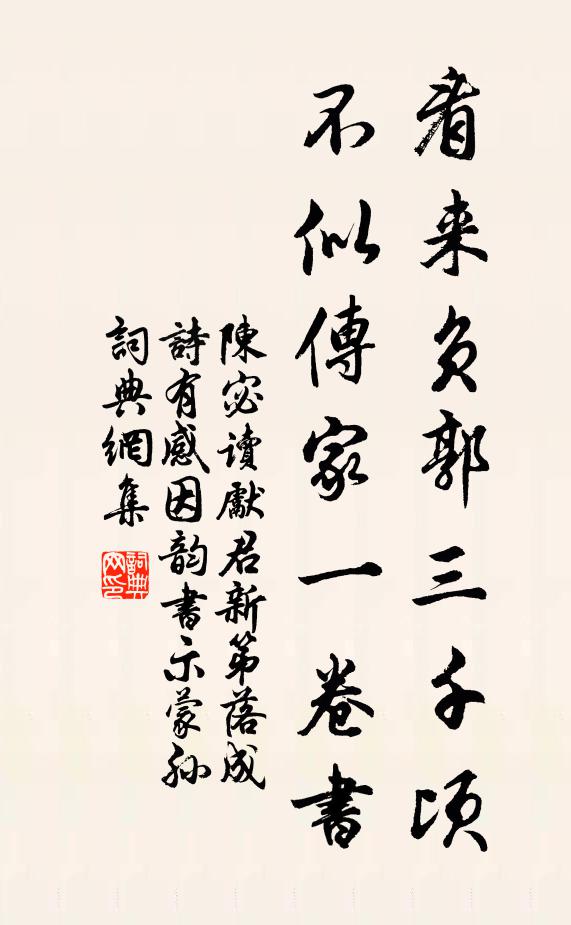 看来負郭三千頃
不似傳家一卷書
陳宓讀獻君新第落成
詩有感因韵書示蒙孫
詞典網集
詞典網印